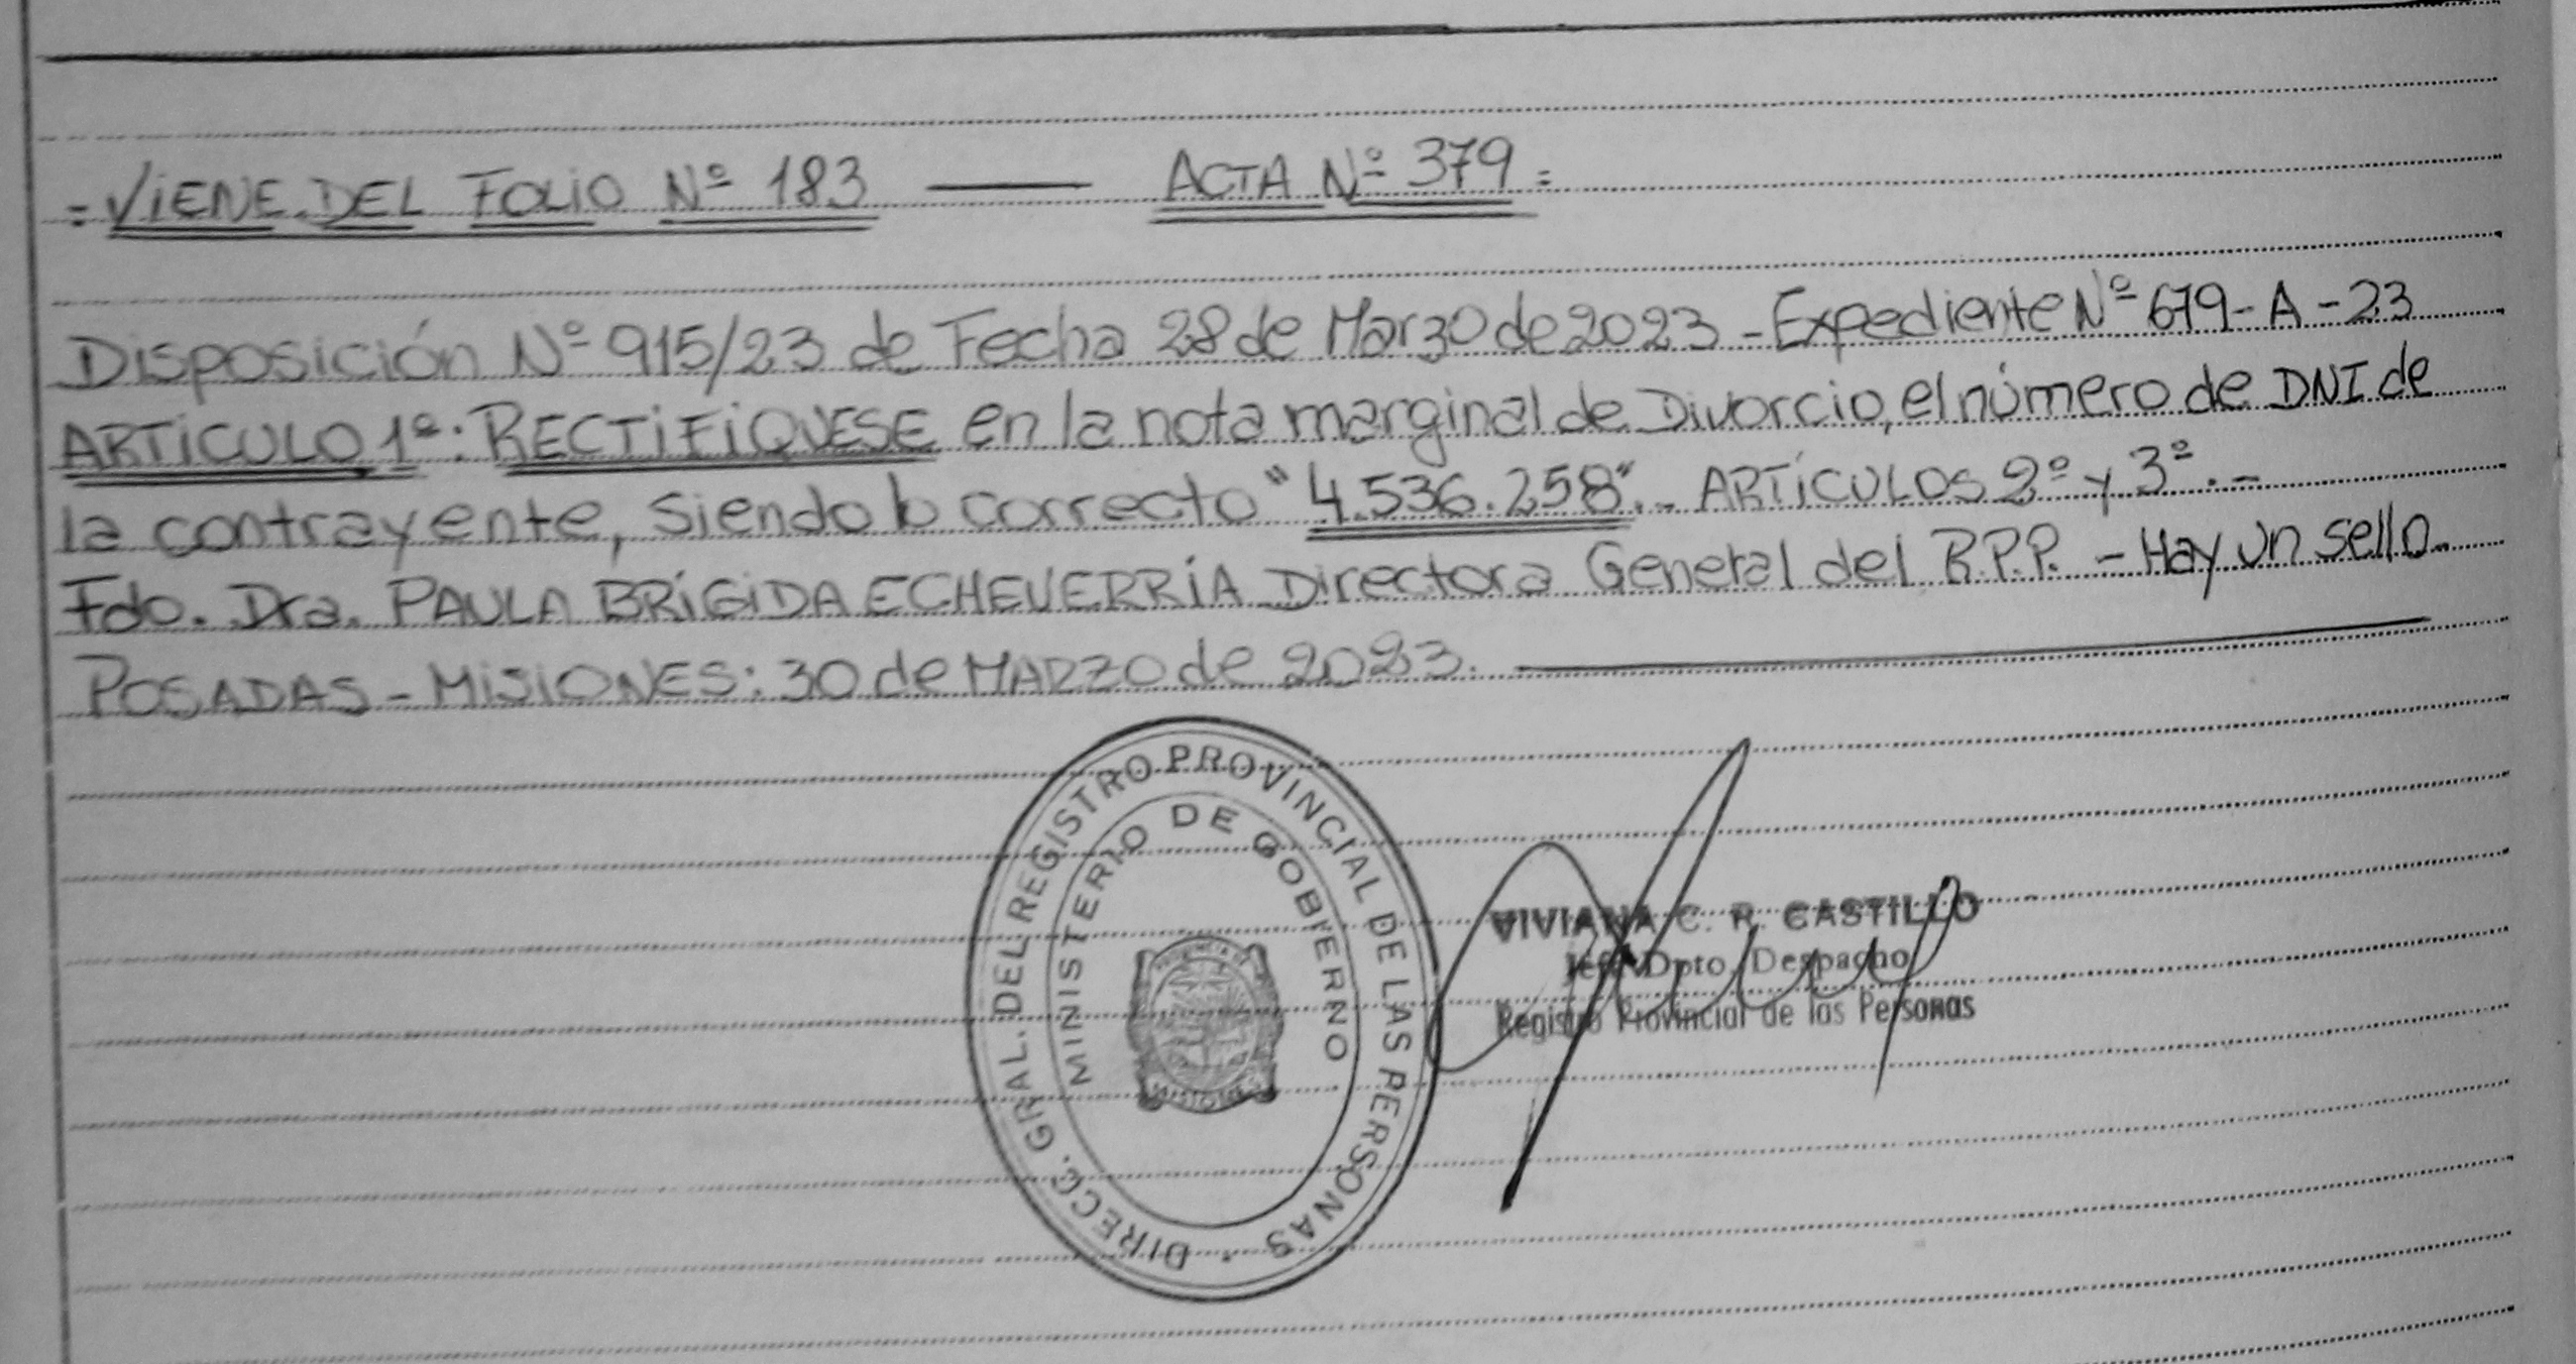 = VIENE DEL FOLIO Nº 183 —— ACTA Nº 379 =
Disposición Nº 915/23 de Fecha 28 de Marzo de 2023 - Expediente Nº 679-A-23
ARTICULO 1º: RECTIFIQUESE en la nota marginal de Divorcio, el número de DNI de
la contrayente, siendo lo correcto "4.536.258".- ARTÍCULOS 2º y 3º.-
Fdo. Dra. PAULA BRÍGIDA ECHEVERRÍA Directora General del R.P.P. - Hay un sello.
POSADAS - MISIONES: 30 de MARZO de 2023. ——
DIRECC. GRAL. DEL REGISTRO PROVINCIAL DE LAS PERSONAS
MINISTERIO DE GOBIERNO
MISIONES
VIVIANA C. R. CASTILLO
Jefe Dpto. Despacho
Registro Provincial de las Personas